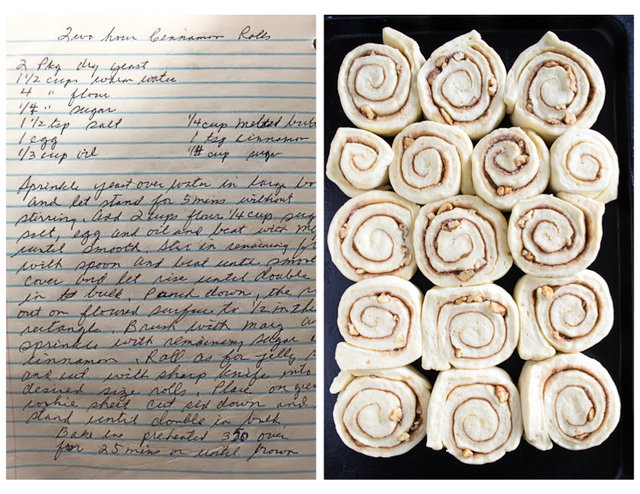 Two hour Cinnamon Rolls
2 Pkg dry yeast
1 1/2 cups warm water
4 " flour
1/4 " sugar
1 1/2 tsp salt 1/4 cup melted
1 egg 1 tsp cinnamon
1/3 cup oil 1/4 cup sugar
Sprinkle yeast over water in large
and let stand for 5 mins without
stirring. Add 2 cups flour 1/4 cup
salt, egg and oil and beat with
until smooth. Stir in remaining
with spoon and beat until
cover and let rise until double
in bulk. Punch down, the
out on floured surface to 1/2 in
rectangle. Brush with marg
sprinkle with remaining sugar
cinnamon. Roll as for jelly
and cut with sharp knife into
desired size rolls. Place on
cookie sheet cut sid down and
stand until double in bulk
Bake in preheated 350 oven
for 25 mins or until brown